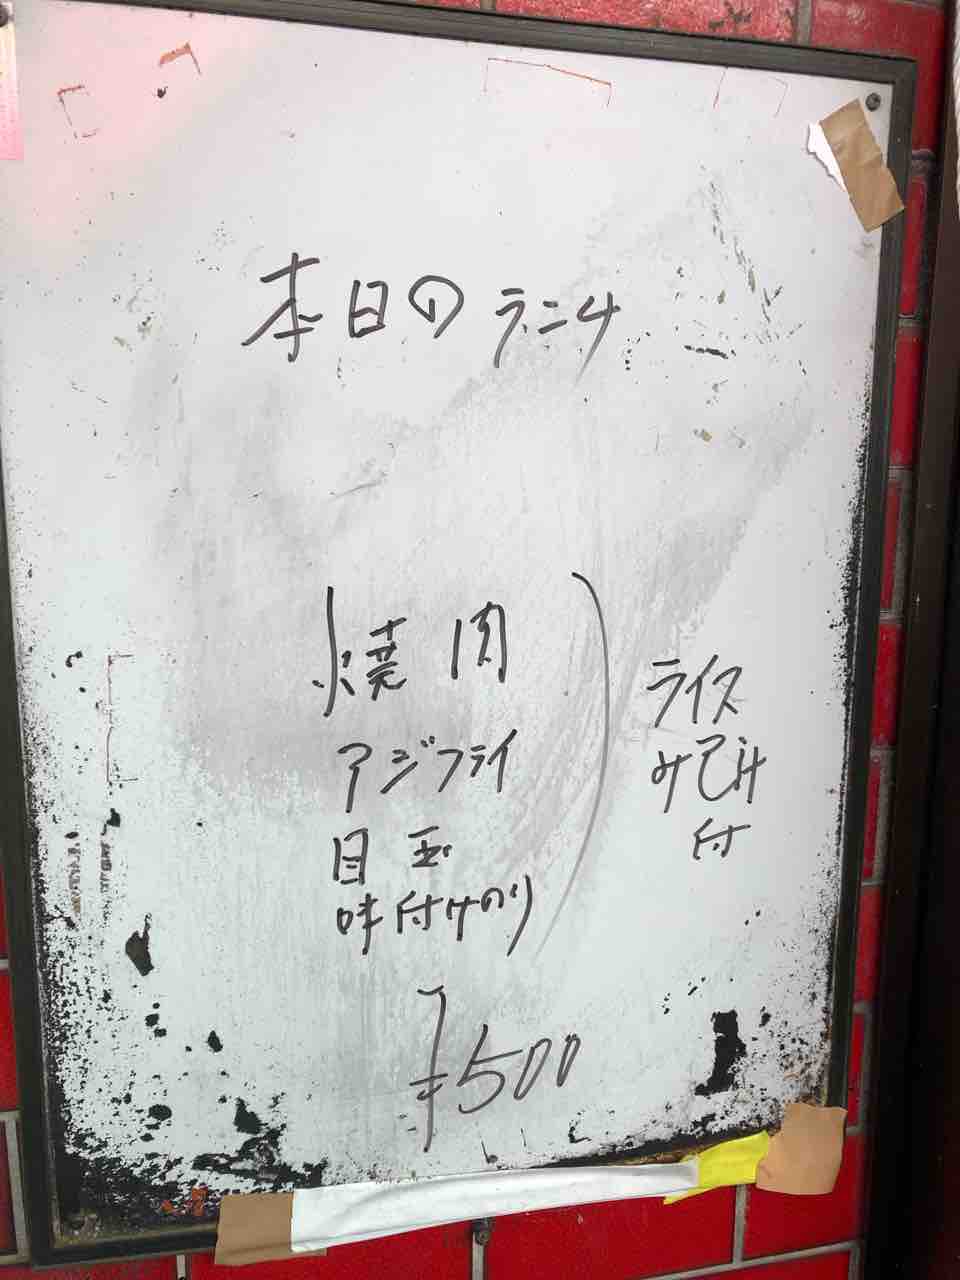 本日のランチ
焼肉
アジフライ
目玉
味付けのり
ライス
みそ汁
付
¥500